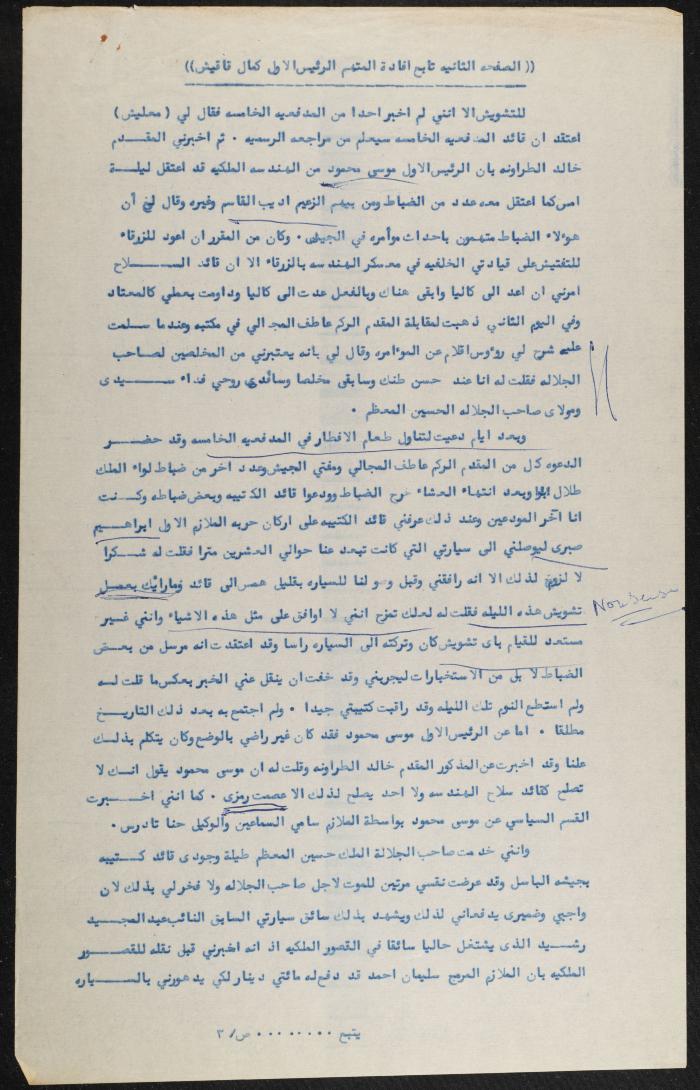 (( الصفحه الثانيه تابع افادة المتهم الرئيس الاول كمال قاقيش ))
للتشويش الا انني لم اخبر احدا من المدفعيه الخامسه فقال لي ( معليش )
اعتقد ان قائد المدفعيه الخامسه سيعلم من مراجعه الرسميه ٠ ثم اخبرني المقدم
خالد الطراونه بان الرئيس الاول موسى محمود من الهندسه الملكيه قد اعتقل ليلة
امس كما اعتقل معه عدد من الضباط ومن بينهم الزعيم اديب القاسم وغيره وقال لي أن
هوءلاء الضباط متهمون باحداث موأمره في الجيش ٠ وكان من المقرر ان اعود للزرقاء
للتفتيش على قيادتي الخلفيه في معسكر الهندسه بالزرقاء الا ان قائد السلاح
امرني ان اعد الى كاليا وابقى هناك وبالفعل عدت الى كاليا وداومت بعملي كالمعتاد
وفي اليوم الثاني ذهبت لمقابلة المقدم الركم عاطف المجالي في مكتبه وعندما سلمت
عليه شرح لي روءوس اقلام عن الموءامره وقال لي بانه يعتبرني من المخلصين لصاحب
الجلاله فقلت له انا عند حسن ظنك وسابقى مخلصا وسأفدي روحي فداء سيدى
ومولاى صاحب الجلاله الحسين المعظم ٠
وبعد ايام دعيت لتناول طعام الافطار في المدفعيه الخامسه وقد حضر
الدعوه كل من المقدم الركم عاطف المجالي ومفتي الجيش وعدد آخر من ضباط لواء الملك
طلال وبعد انتهاء العشاء خرج الضباط وودعوا قائد الكتيبه وبعض ضباطه وكنت
انا آخر المودعين وعند ذلك عرفني قائد الكتيبه على اركان حربه الملازم الاول ابراهيم
صبرى ليوصلني الى سيارتي التي كانت تبعد عنا حوالي العشرين مترا فقلت له شكرا
لا لزوم لذلك الا انه رافقني وقبل وصولنا للسياره بقليل همس الى قائد ومارائيك بعمل
تشويش هذه الليله فقلت له لعلك تمزح انني لا اوافق على مثل هذه الاشياء وانني غير
Nonsense
مستعد للقيام باى تشويش كان وتركته الى السياره راسا وقد اعتقدت انه مرسل من بعض
الضباط لا بل من الاستخبارات ليجربني وقد خفت ان ينقل عني الخبر بعكس ما قلت له
ولم استطع النوم تلك الليله وقد راقبت كتيبتي جيدا ٠ ولم اجتمع به بعد ذلك التاريخ
مطلقا ٠ اما عن الرئيس الاول موسى محمود فقد كان غير راضي بالوضع وكان يتكلم بذلك
علنا وقد اخبرت عن المذكور المقدم خالد الطراونه وقلت له ان موسى محمود يقول انك لا
تصلح كقائد سلاح الهندسه ولا احد يصلح لذلك الا عصمت رمزى ٠ كما انني اخبرت
القسم السياسي عن موسى محمود بواسطة الملازم سامي السماعين والوكيل حنا تادرس ٠
وانني خدمت صاحب الجلالة الملك حسين المعظم طيلة وجودى قائد كتيبه
بجيشه الباسل وقد عرضت نفسي مرتين للموت لاجل صاحب الجلاله ولا فخر لي بذلك لان
واجبي وضميرى يدفعاني لذلك ويشهد بذلك سائق سيارتي السابق النائب عبد المجيد
رشيد الذى يشتغل حاليا سائقا في القصور الملكيه اذ انه اخبرني قبل نقله للقصور
الملكيه بان الملازم المرمج سليمان احمد قد دفع له مائتي دينار لكي يدهورني بالسياره
يتبع ٠٠٠٠٠٠٠٠ ص/ ٣